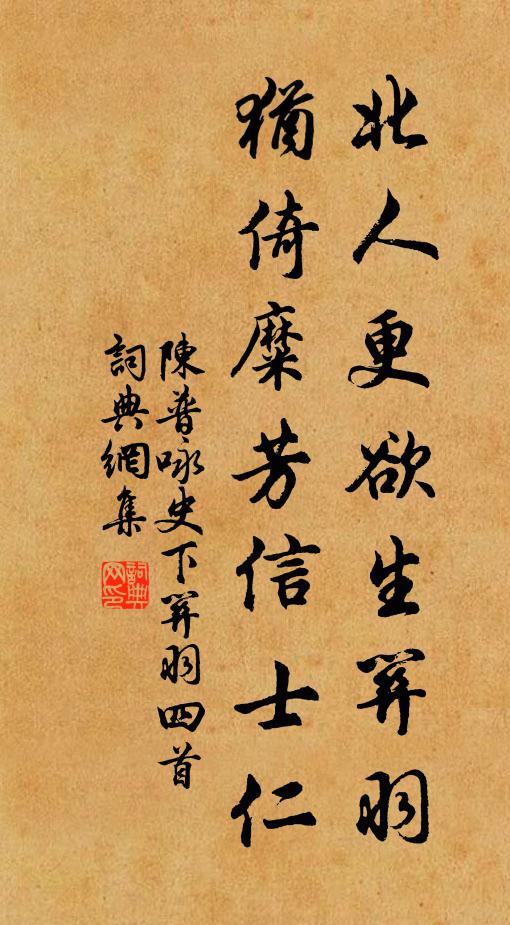 北人更欲生羿羽
猶倚糜芳信士仁
陳普咏史下羿羽四首
詞典網集
詞典網印